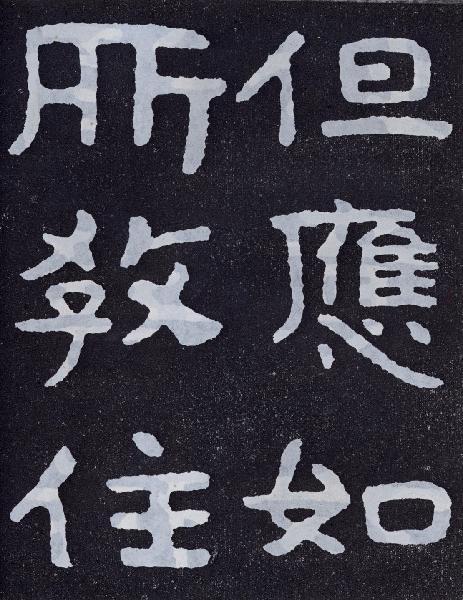 但應如
所教住